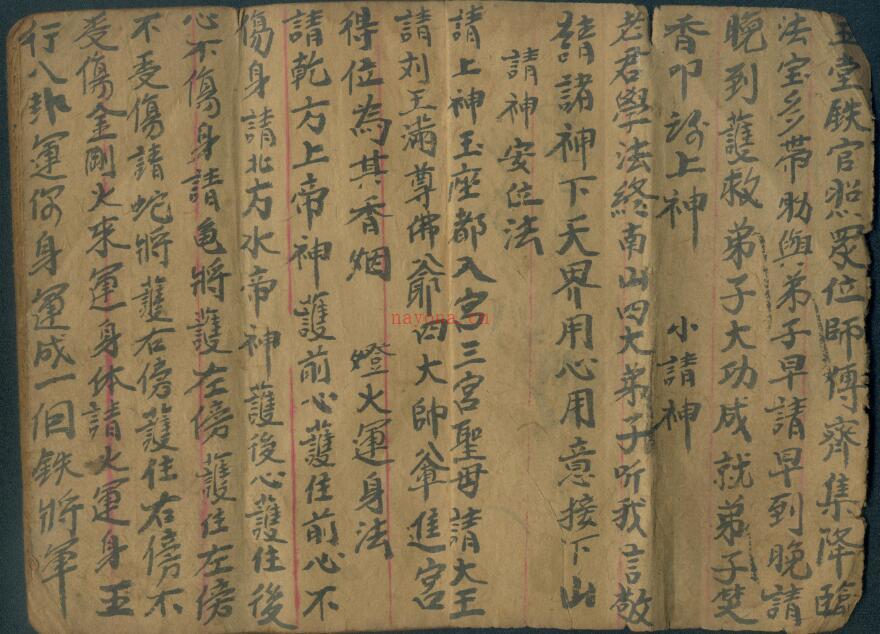 玉堂鉄官照眾位師傅齊集降臨
法宝多帶助與弟子早請早到晚請
晚到護救弟子大功成就弟子焚
香叩謝上神　小請神
老君學法終南山四大弟子听我言敬
請諸神下天界用心用意接下山
請神安位法
請上神玉座都入宮三宮聖母請大王
請刘王滿尊佛八爺四大帥八輦進宮
得位為其香烟　燈火運身法
請乾方上帝神護前心護住前心不
傷身請北方水帝神護後心護住後
心不傷身請龟將護左傍護住左傍
不受傷請蛇將護右傍護住右傍不
受傷金剛火来運身体請火運身五
行八卦運你身運成一個鉄將軍
nayona.cn